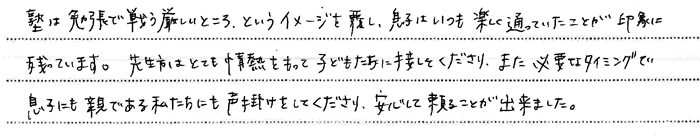 塾は勉強で戦う厳しいところ、というイメージを覆し、息子はいつも楽しく通っていたことが印象に
残っています。先生方はとても情熱をもって子どもたちに接してくださり、また必要なタイミングで
息子にも親である私たちにも声掛けをしてくださり、安心して頼ることが出来ました。